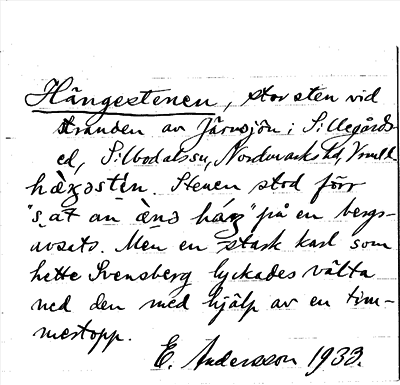 Hängestenen, stor sten vid
stranden av Järnsjön i Sillegårds-
ed, Silbodalssn, Nordmarks hd, Vrmld.
hæŋəstén. Stenen stod förr
"sạt än ènə háŋ" på en bergs-
avsats. Men en stark karl som
hette Svensberg lyckades välta
ned den med hjälp av en tim-
merstopp.
E. Andersson 1933.